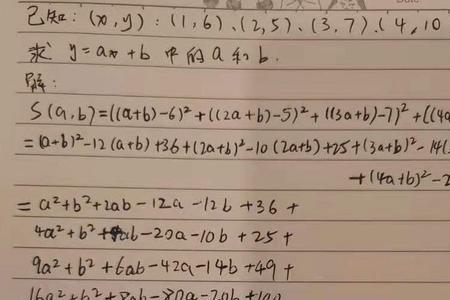 已知：(x,y)：(1,6)、(2,5)、(3,7)、(4,10
求 y=ax+b 中的 a 和 b.
解：
S(a,b)=((a+b)-6)²+((2a+b)-5)²+((3a+b)-7)²+[(4a
=(a+b)²-12(a+b)+36+(2a+b)²-10(2a+b)+25+(3a+b)²-14(
+(4a+b)²-2
=a²+b²+2ab-12a-12b+36+
4a²+b²+4ab-20a-10b+25+
9a²+b²+6ab-42a-14b+49+
16a²+b²+8ab-80a-20b+100